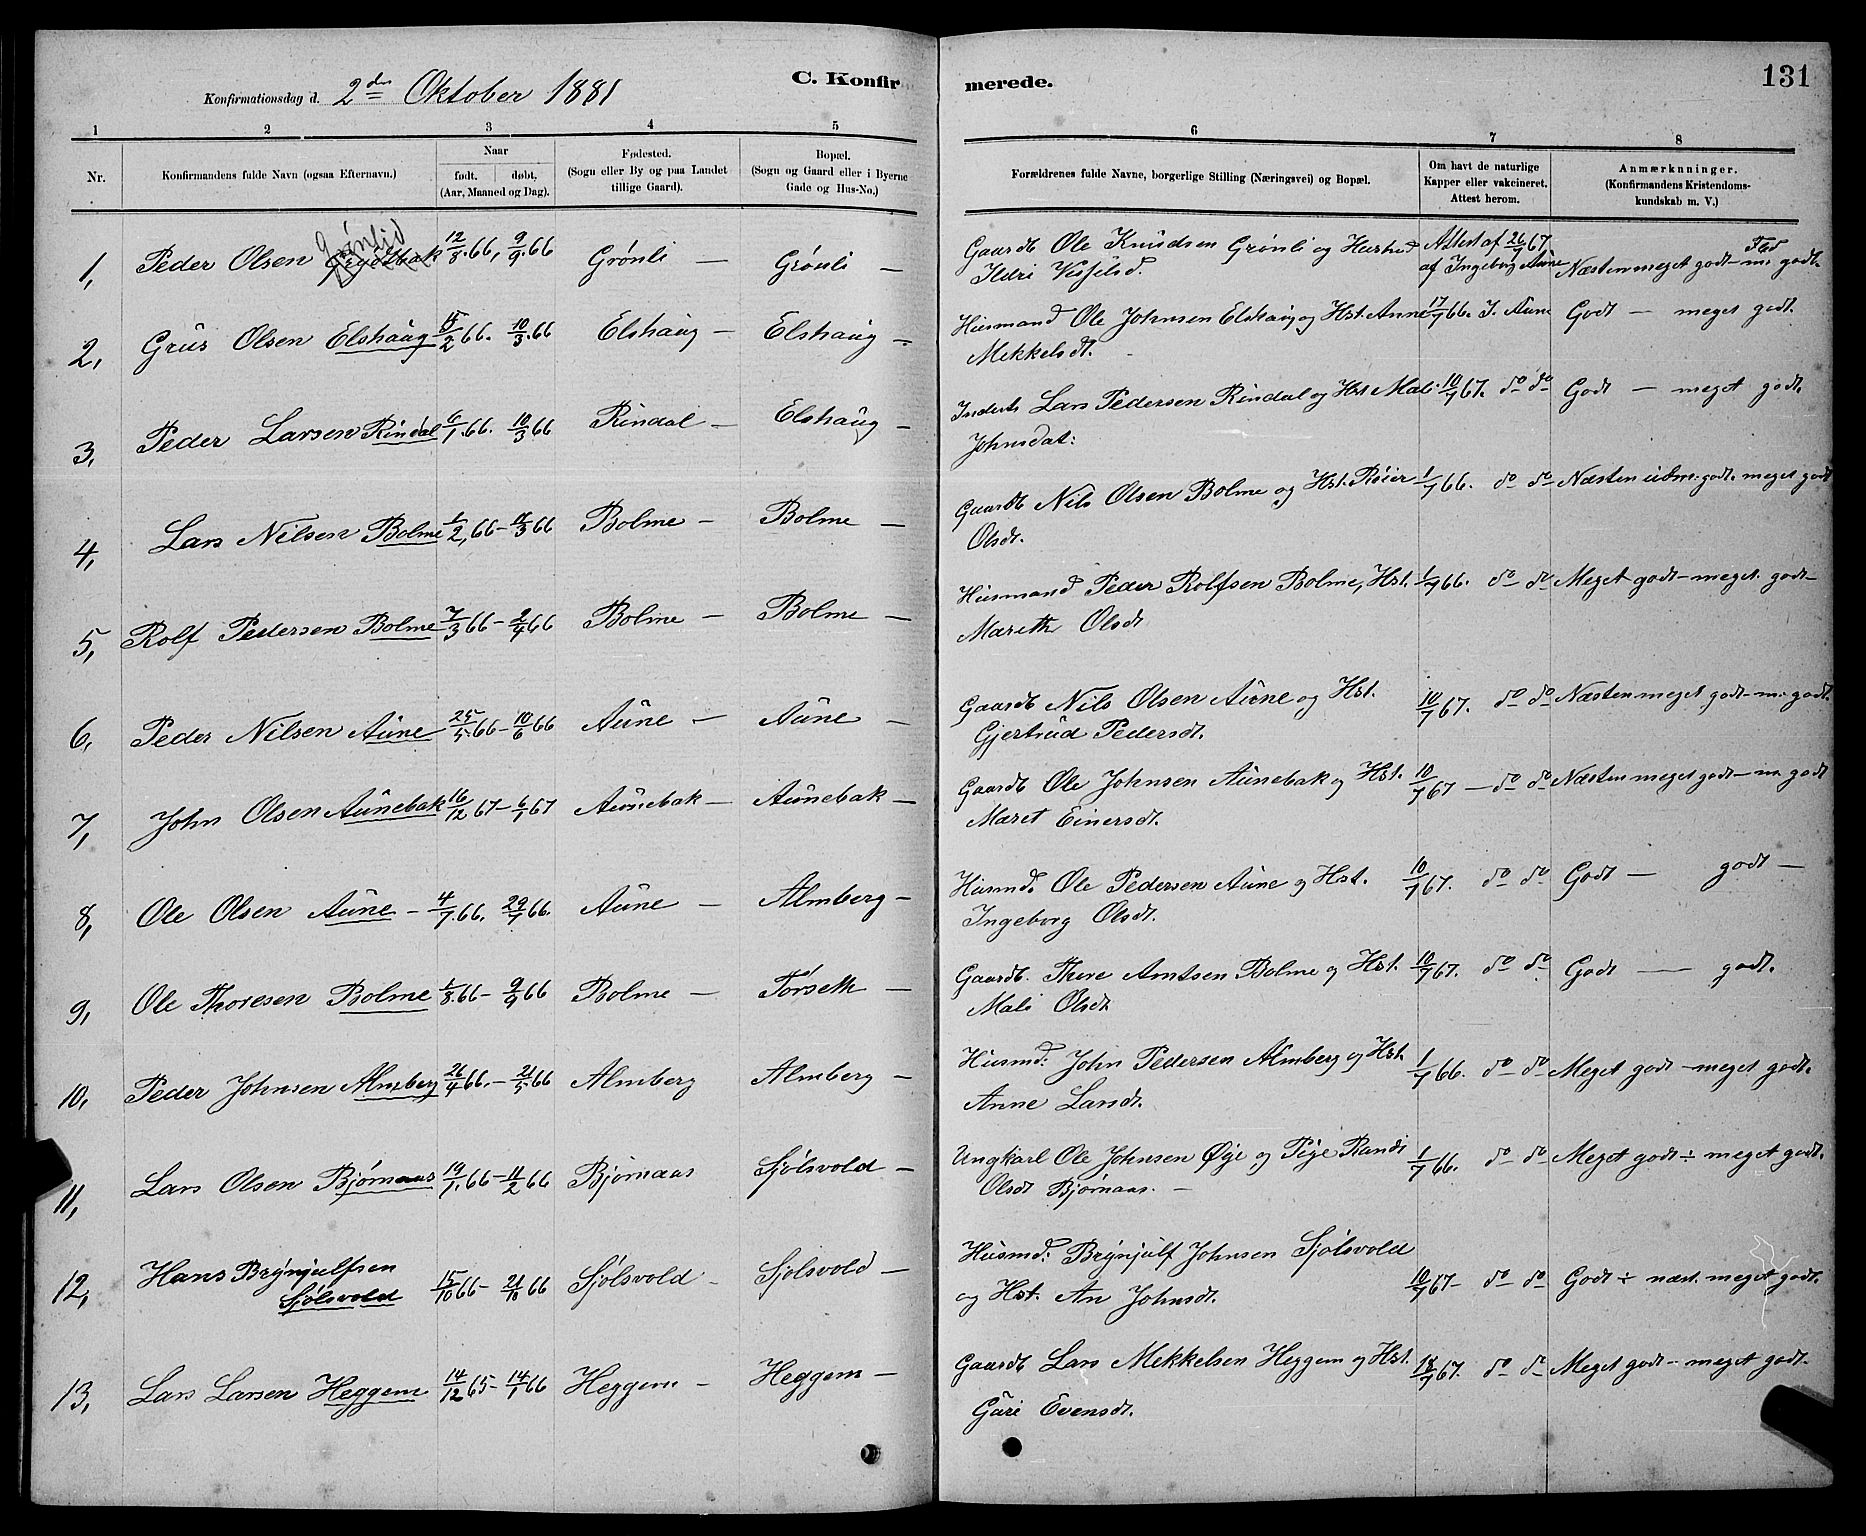 C. Konfirmerede. 131
Konfirmationsdag d. 2den Oktober 1881
1 2 3 4 5 6 7 8
Nr. Konfirmandens fulde Navn (ogsaa Efternavn.) Naar født, døbt, (Aar, Maaned og Dag). Fødested. (Sogn eller By og paa Landet tillige Gaard). Bopæl. (Sogn og Gaard eller i Byerne Gade og Hus-No.) Forældrenes fulde Navne, borgerlige Stilling (Næringsvei) og Bopæl. Om havt de naturlige Kapper eller vakcineret. Attest herom. Anmærkninger. (Konfirmandens Kristendoms-kundskab m. V.)
1, Peder Olsen Grønlid 12/8.66, 9/9.66 Grønli — Grønli — Gaardb Ole Knudsen Grønli og Hustred Attest af 26/7 67, Flid
Ildri Vesfelsd. af Ingeborg Aune Næsten meget godt — m. godt.
2, Grus Olsen Elshaug 15/2 66. 10/3.66 Elshaug — Elshaug — Husmand Ole Johnsen Elshaug og Hst. Anne 17/7 66. I. Aune Godt — meget godt.
Mekkelsdt.
3, Peder Larsen Rindal 6/1.66. 10/3 66 Rindal — Elshaug — Inderst Lars Pedersen Rindal og Hst Mali 10/7 67. do do Godt — meget godt.
Johnsdat:
4, Lars Nilsen Bolme 1/2,66 - 11/3 66 Bolme — Bolme — Gaardb Nils Olsen Bolme og Hst. Røier 1/7 66. do do Næsten udm. godt. meget godt
Olsdt.
5, Rolf Pedersen Bolme 7/3 66 - 2/4 66 Bolme — Bolme — Husmand Peder Rolfsen Bolme, Hst. 1/7 66. do do Meget godt — meget godt —
Mareth Olsdt
6, Peder Nilsen Aune 25/5.66 - 10/6 66 Aune — Aune — Gaardb Nils Olsen Aune og Hst. 10/7 67. do do Næsten meget godt — m. godt.
Gjertrud Pedersdt.
7, John Olsen Aunebak 16/12 67 - 6/1 67 Aunebak — Aunebak — Gaardb Ole Johnsen Aunebak og Hst. 10/7 67 — do do Næsten meget godt — m. godt
Maret Einersdt.
8, Ole Olsen Aune - 4/7.66. 29/7 66. Aune — Almberg — Husmd. Ole Pedersen Aune og Hst. 10/7 67. do do Godt — godt —
Ingeborg Olsdt.
9, Ole Thoresen Bolme 1/8.66 - 9/9 66 Bolme — Torseth — Gaardb. Thore Arntsen Bolme og Hst. 10/7 67. do do Godt — godt.
Mali Olsdt
10, Peder Johnsen Almberg 26/4 66. - 21/5.66 Almberg Almberg — Husmd: John Pedersen Almberg og Hst. 1/7 66. do do Meget godt — meget godt.
Anne Larsdt.
11, Lars Olsen Bjørnaas 19/1.66 - 11/2 66 Bjørnaas Sjølsvold — Ungkarl Ole Johnsen Øye og Pige Randi 1/7 66. do do Meget godt ÷ meget godt.
Olsdt Bjørnaas. —
12, Hans Brynjulfsen Husmd: Brynjulf Johnsen Sjølsvold
Sjølsvold 15/10 66 - 21/10 66 Sjølsvold — Sjølsvold — og Hst. An Johnsdt. 10/7 67 - do do Godt ÷ næst. meget godt.
13, Lars Larsen Heggem 14/12 65 - 14/1 66 Heggem — Heggem — Gaardb Lars Mekkelsen Heggem og Hst. 18/7 67. do do Meget godt — meget godt.
Guri Evensdt.